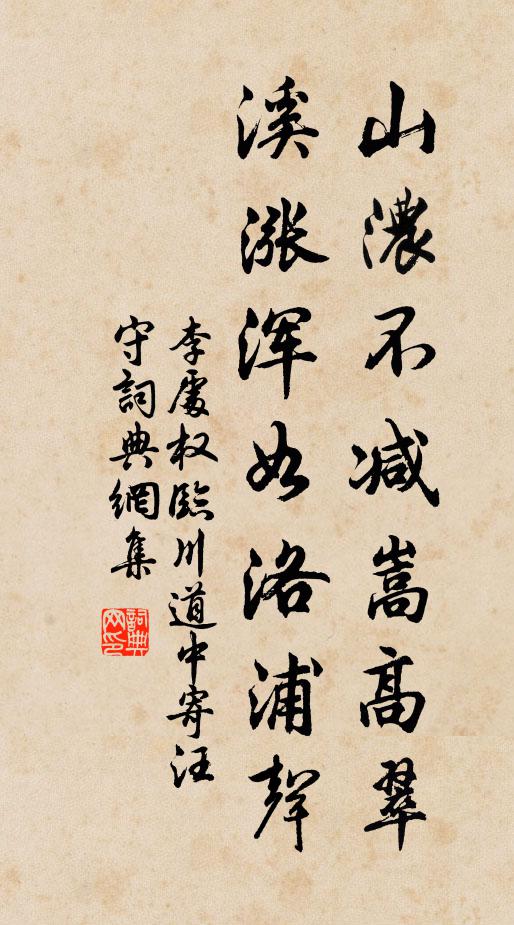 山濃不减嵩高翠
溪漲浑如洛浦聲
李處权臨川道中寄汪
守詞典網集
詞典
网印